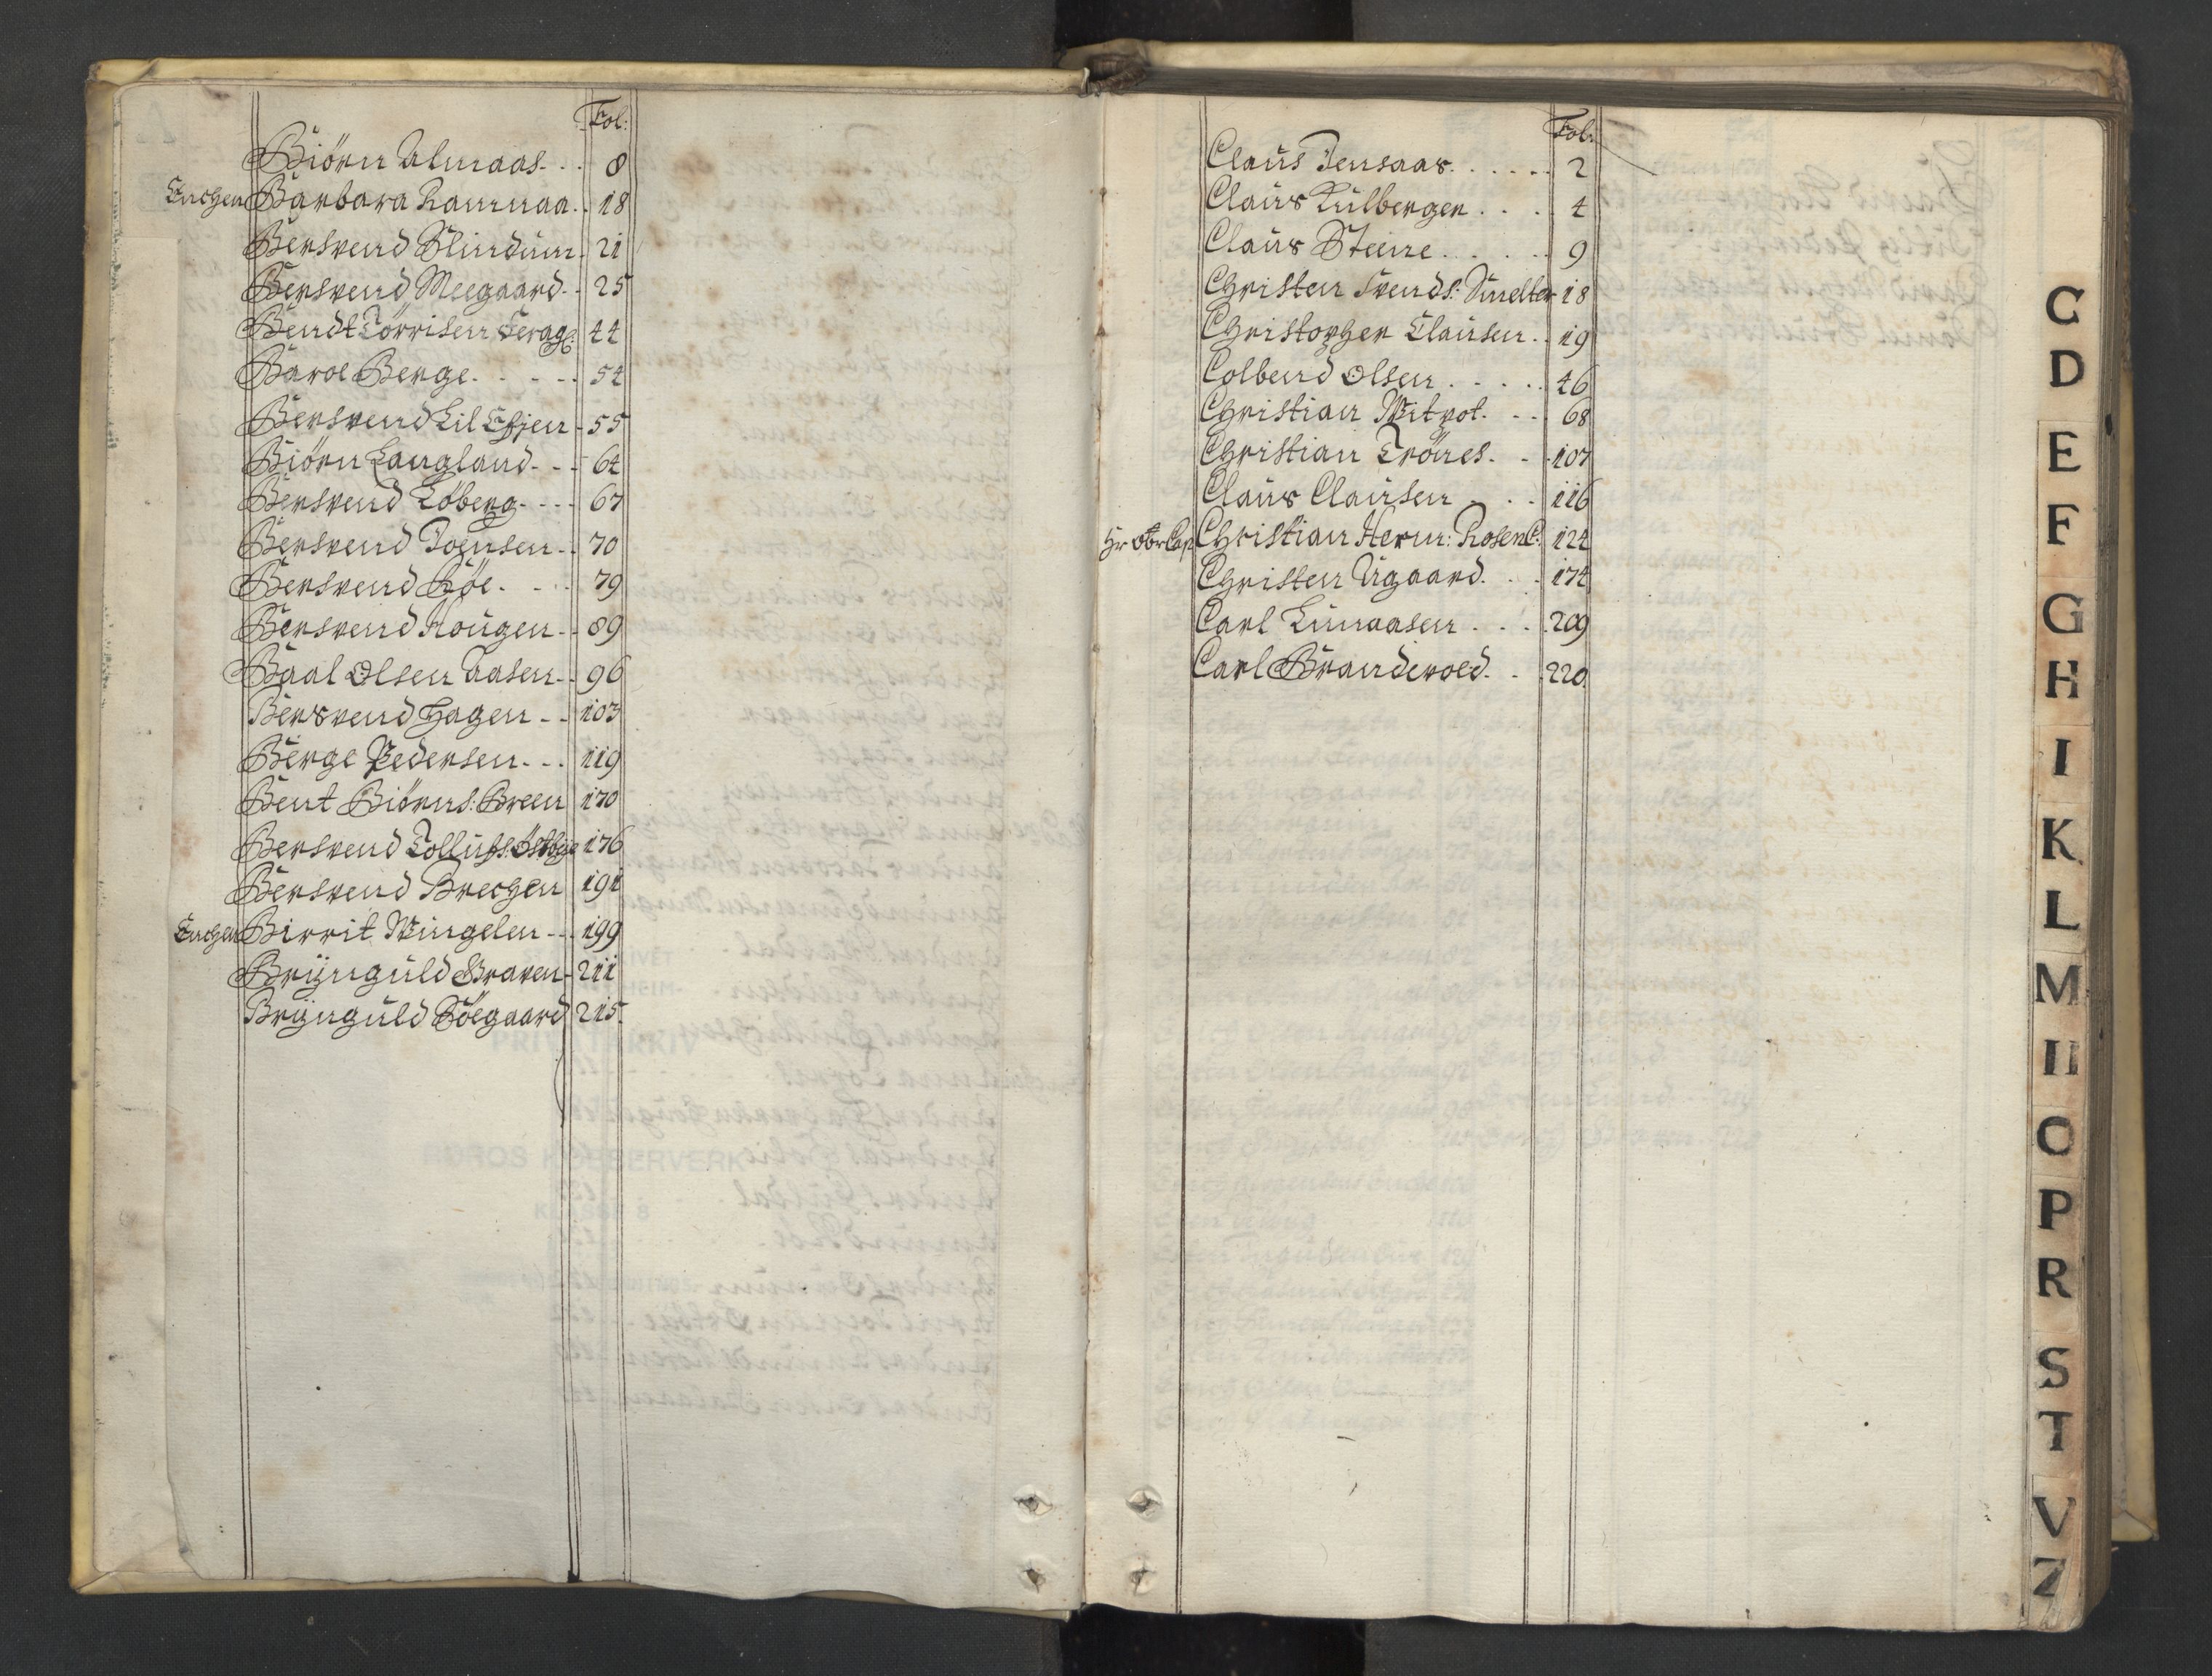 Fol:
Biörn Almaas. . . 8
Enchen Barbara Ramnaa. . 18
Bersvend Blindum. 21
Bersvend Meegaard. . 25
Bendt Törrisen Ferag: 44
Baroe Berge. . . . . 54
Bersvend Lil Efjen - 55
Biörn Langland. - - 64
Bersvend Löberg. - - - 67
Bersvend Joensen. . 70
Bersvend Böe. . - . 79
Bersvend Hougen. . 89
Baal Olsen Aasen. . 96
Bersvend Hagen - - 103
Berge Pedersen. . . 119
Bent Biörns: Breen 170
Bersvend Tollufs: Östbye 176
Bersvend Brechen 191
Enchen Birrit Wingelen - - . 199
Brÿnguld Braren - 211
Brÿnguld Söegaard 215.
Fol:
Claus Jensaas. . . . . . 2
Claus Kulberger . . . . 4
Claus Steene. . . . . 9
Christen Svends: Smelter 18
Christopher Clausen. . 19
Colbend Olsen. . . . . . 46
Christian Witrot. - - 68
Christian Trönes. . . 107
Claus Clausen . . . 116
Hr Obr Cap Christian Herm: Rosen C: 124
Christen Aagaard. . . 174
Carl Lunaasen . . . . 209
Carl Branderoed. . . 220.
C
D
E
F
G
H
I
K
L
M
N
O
P
R
S
T
V
Z